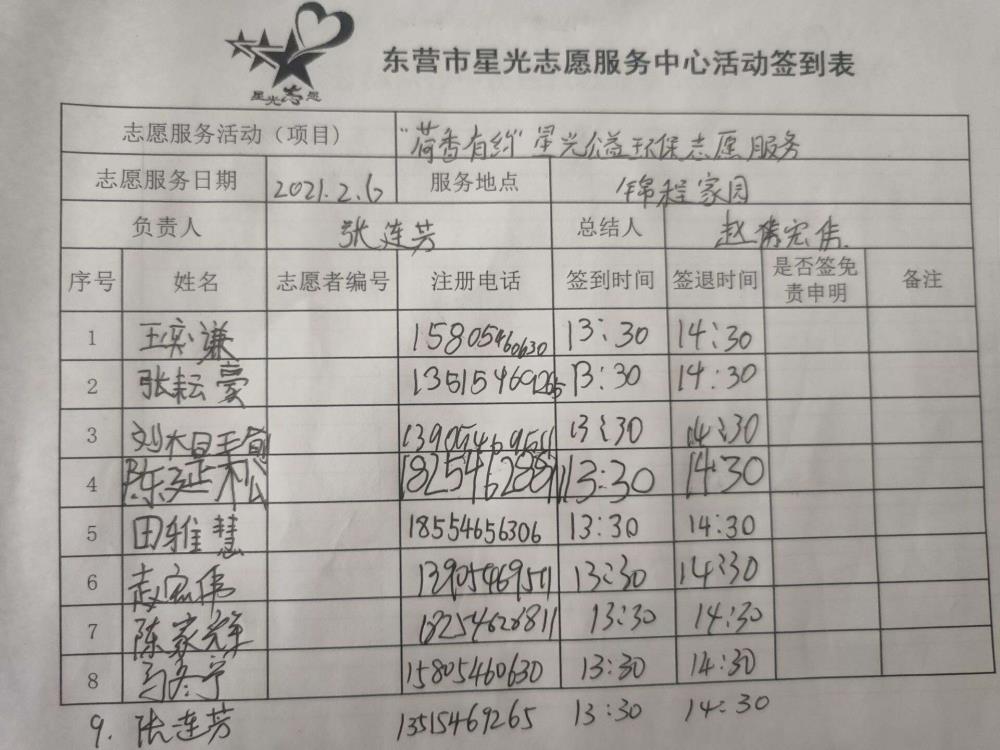 星光志愿
东营市星光志愿服务中心活动签到表
志愿服务活动（项目） "荷香有约"星光公益环保志愿服务
志愿服务日期 2021.2.6 服务地点 锦程家园
负责人 张连芳 总结人 赵隽宏伟
序号 姓名 志愿者编号 注册电话 签到时间 签退时间 是否签免责申明 备注
1 王奕谦 15805460630 13:30 14:30
2 张耘豪 13515469265 13:30 14:30
3 13905469511 13:30 14:30
4 陈延松 18254628811 13:30 14:30
5 田雅慧 18554656306 13:30 14:30
6 赵宏伟 13905469511 13:30 14:30
7 陈家辉 18254628811 13:30 14:30
8 马冬宁 15805460630 13:30 14:30
9. 张连芳 13515469265 13:30 14:30